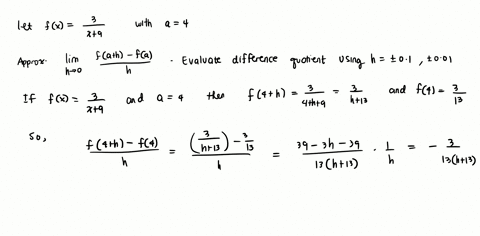 Let f(x) = 3/(x+9) with a = 4
Approx. lim h→0 (f(a+h) - f(a))/h . Evaluate difference quotient using h = ±0.1, ±0.01
If f(x) = 3/(x+9) and a = 4 then f(4+h) = 3/(4+h+9) = 3/(h+13) and f(4) = 3/13
So, (f(4+h) - f(4))/h = ((3/(h+13)) - 3/13)/h = (39 - 3h - 39)/(13(h+13)) · 1/h = - 3/(13(h+13))